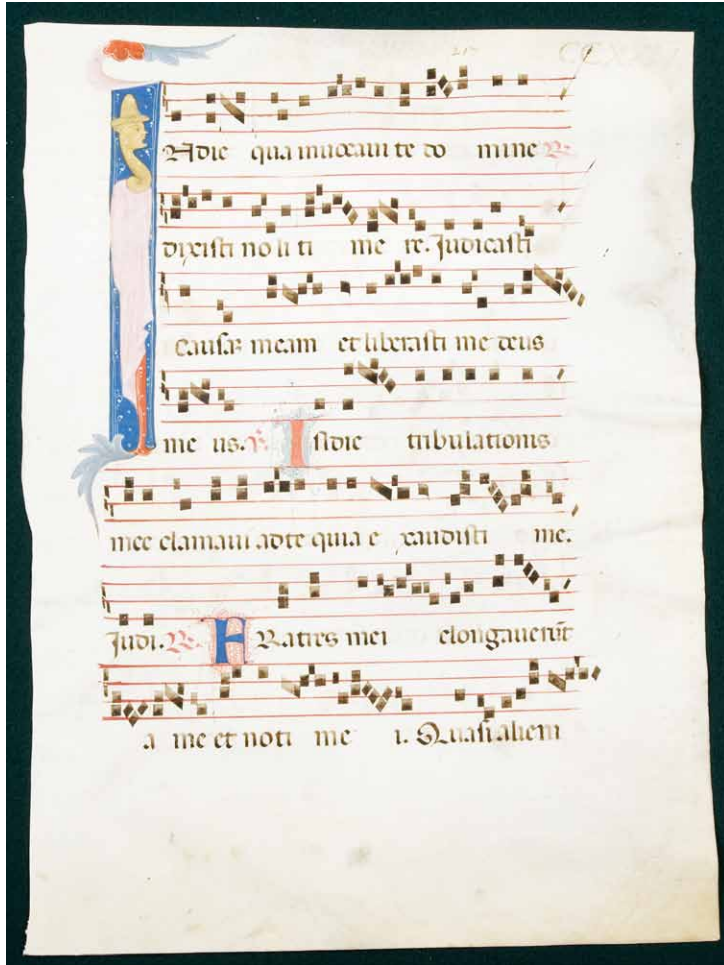 INdie qua inuocaui te do mine R.
dixisti no li ti me re. Judicasti
causaꝫ meam et liberasti me deus
me us. ℣. Indie tribulationis
mee clamaui adte quia e xaudisti me.
Judi. R. FRatres mei elongauerūt
a me et noti me i. Quasi alieni